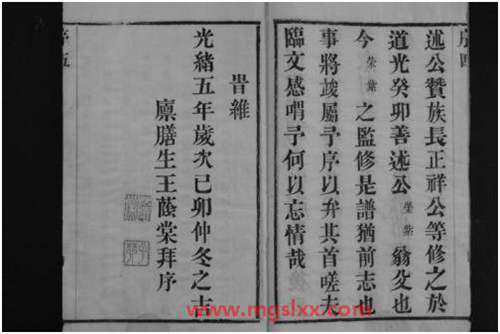 序四
述公贊族長正祥公等修之於
道光癸卯善述公坐紫翁父也
今朱紫之監修是譜猶前志也
事將竣屬予序以弁其首嗟夫
臨文感喟予何以忘情哉
旹維
光緒五年歲次己卯仲冬之吉
廩膳生王蔭棠拜序
序五
www.mgslxx.com